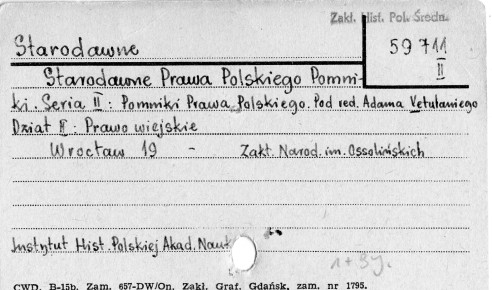 Zakł. Hist. Pol. Średn.
Starodawne
59 711
II
Starodawne Prawa Polskiego Pomni-
ki. Seria II: Pomniki Prawa Polskiego. Pod red. Adama Vetulaniego
Dział II: Prawo wiejskie
Wrocław 19 - Zakł. Narod. im. Ossolińskich
Instytut Hist. Polskiej Akad. Nauk
CWD. B-15b. Zam. 657-DW/On. Zakł. Graf. Gdańsk, zam. nr 1795.